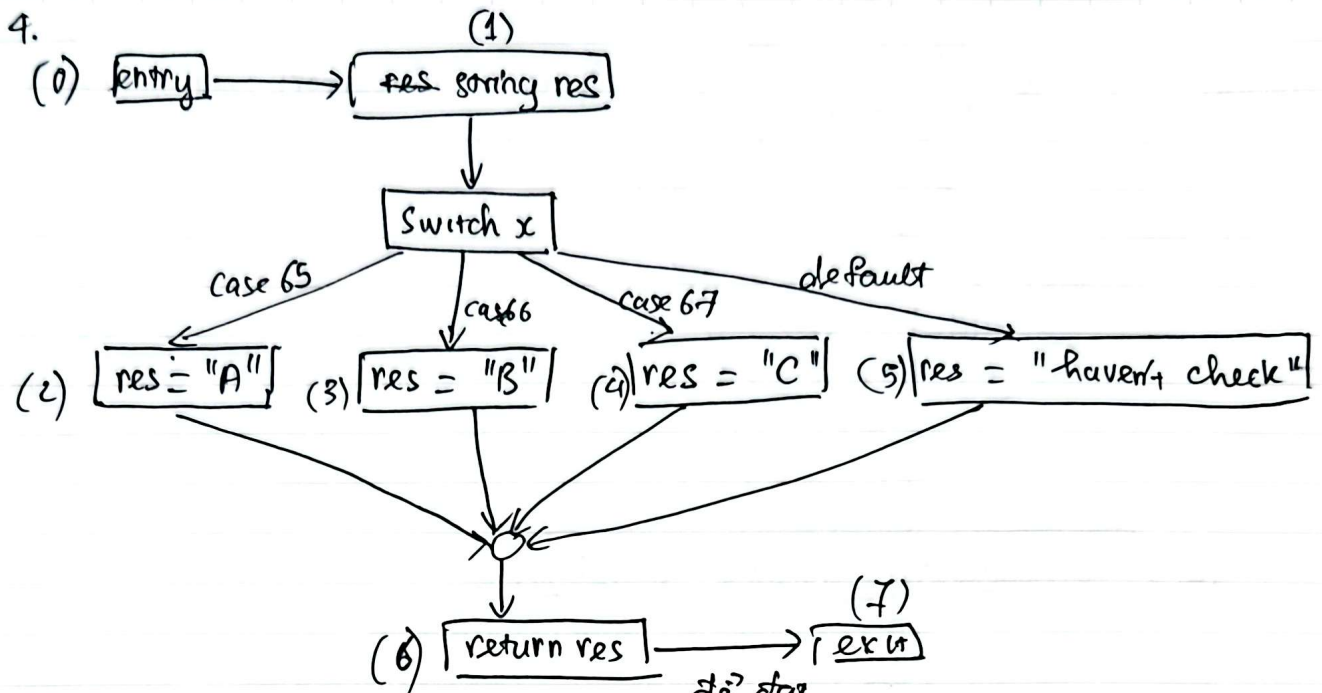 4.
(1)
(0) entry res string res
Switch x
case 65 case 66 case 67 default
(2) res = "A" (3) res = "B" (4) res = "C" (5) res = "haven't check"
(7)
(6) return res exit